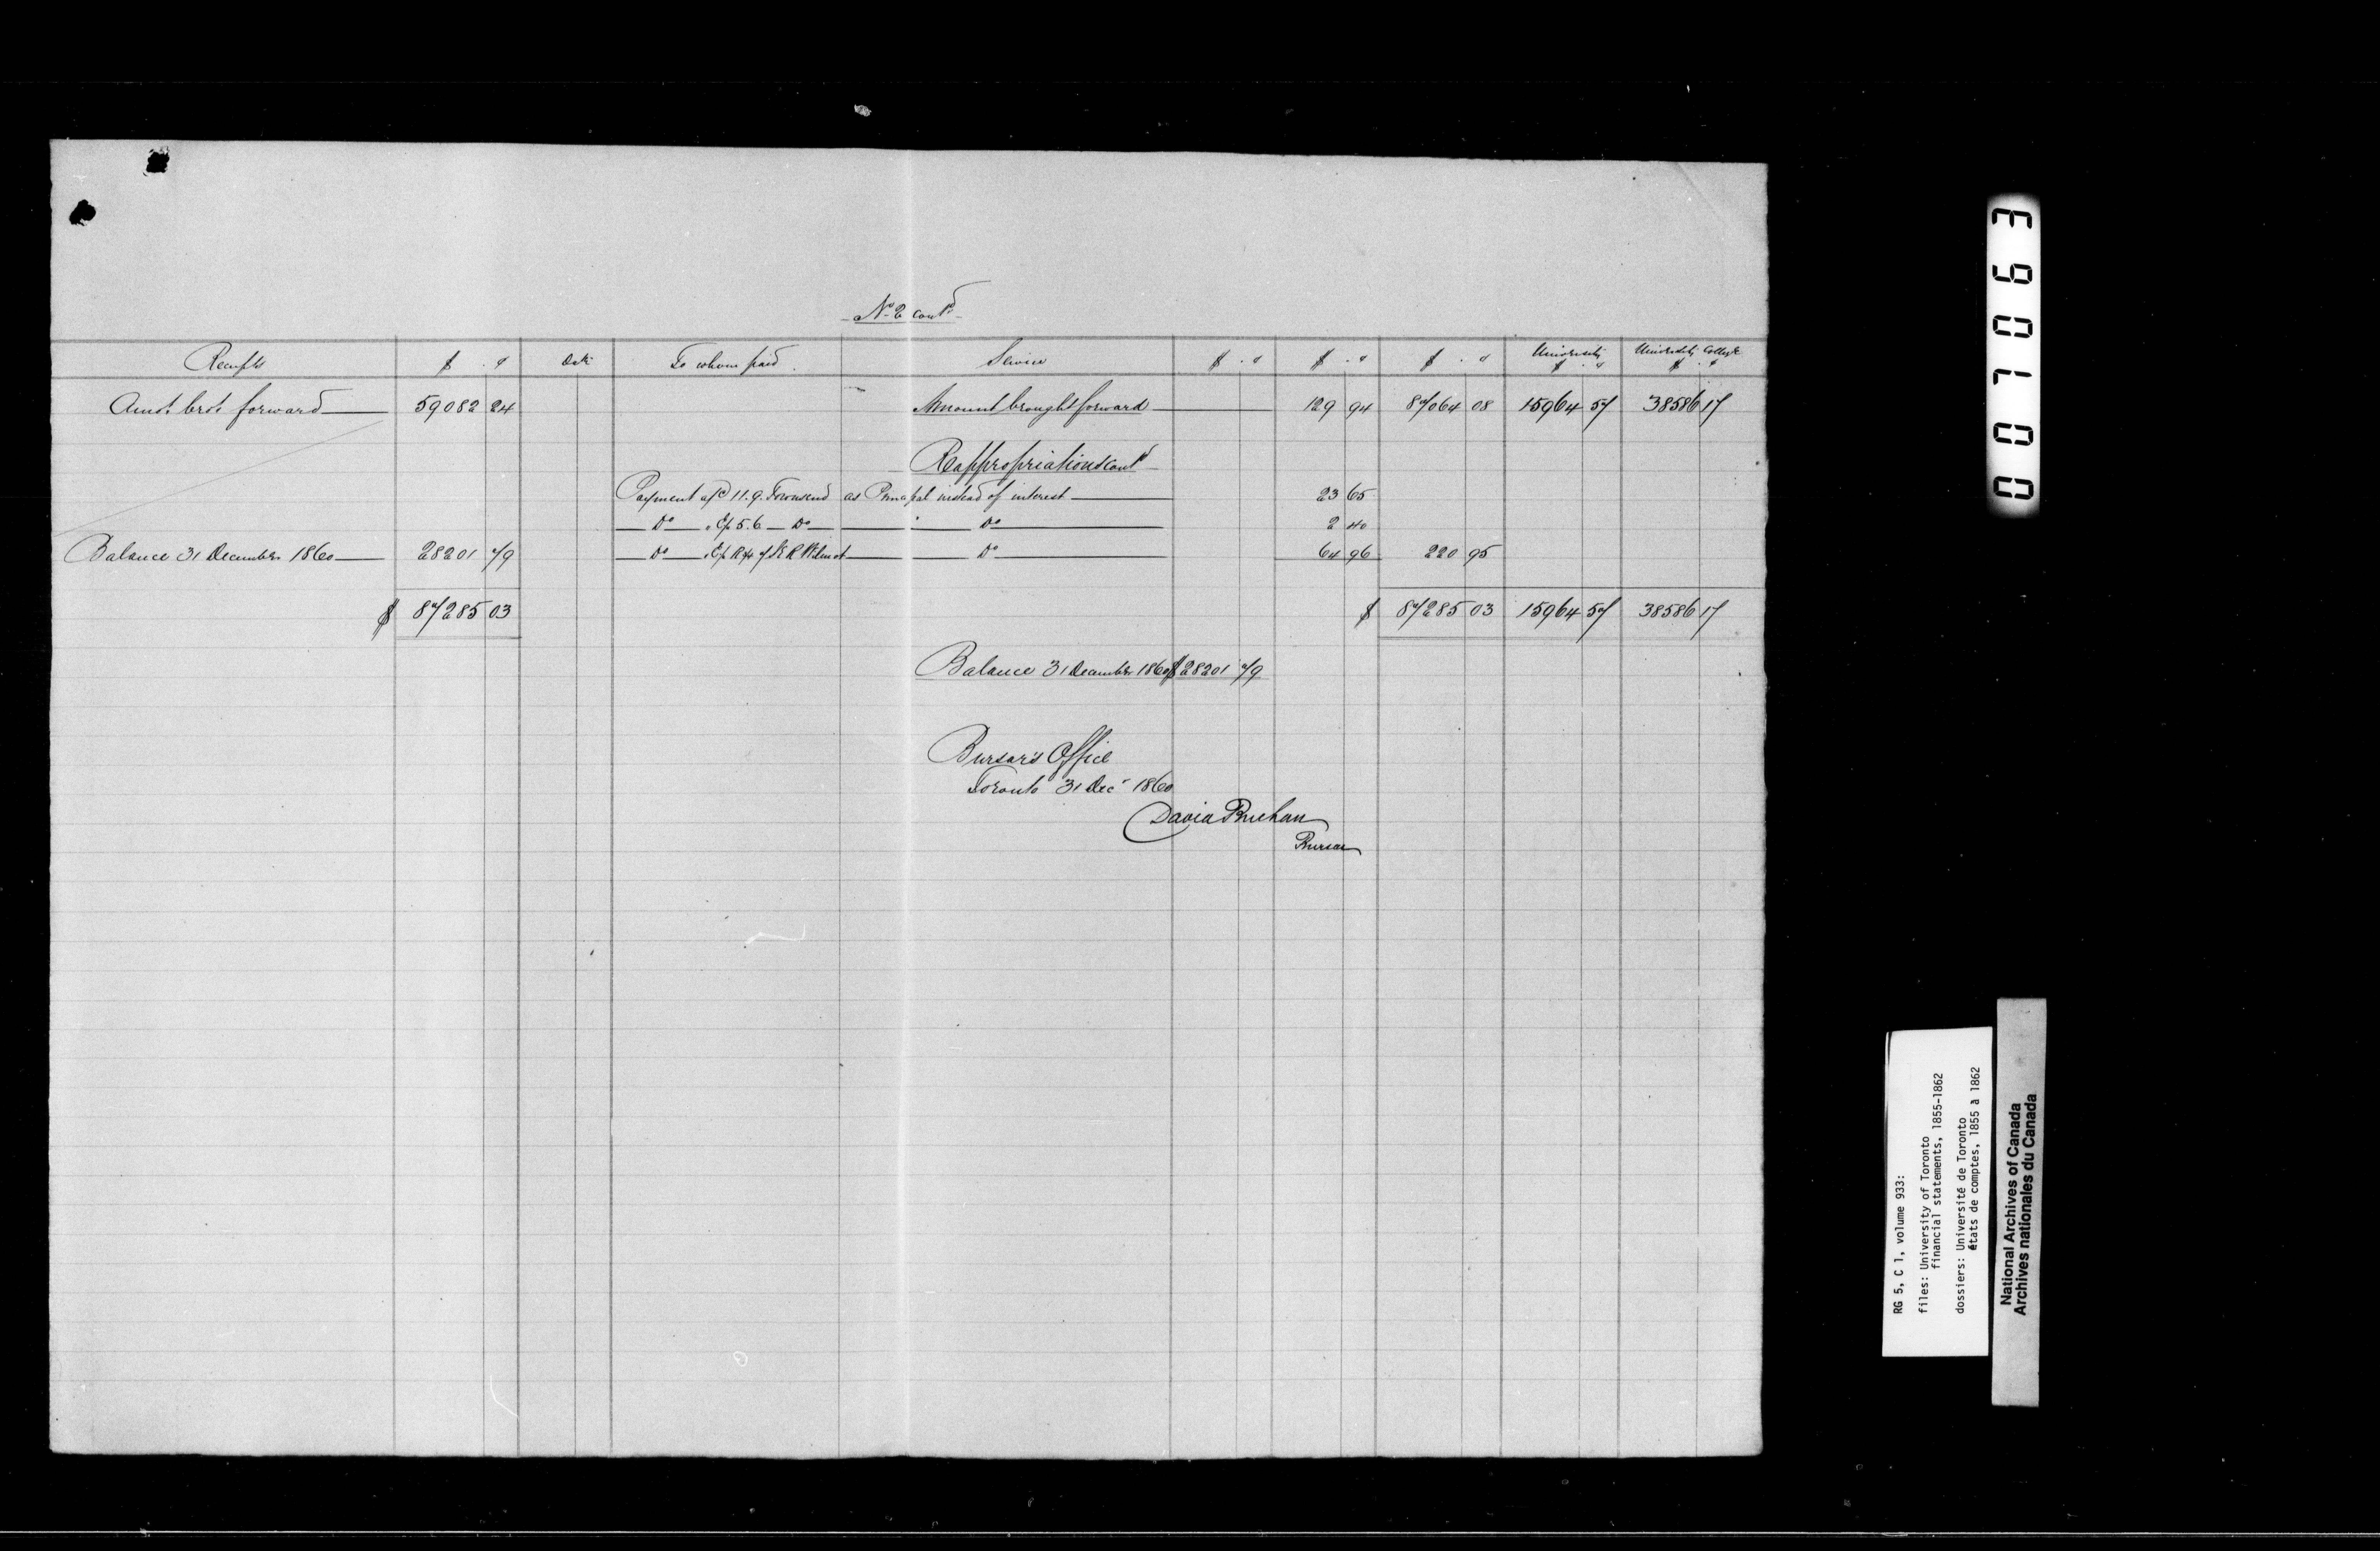 No 2 contd
Receipts $ . ¢ Date To whom paid. Service $ . ¢ $ . ¢ $ . ¢ University $ . ¢ University College $ . ¢
Amot. brot. forward 59082 24 Amount brought forward 129 94 87064 08 15964 57 38586 17
Reappropriations contd
Payment a/c 11.9. Townsend as Principal instead of interest 23 65
Do 5.6 Do Do 2 40
Balance 31 December 1860 28201 79 Do Do 64 96 220 95
$ 87285 03 $ 87285 03 15964 57 38586 17
Balance 31 December 1860 $28201 79
Bursar's Office
Toronto 31 Dec 1860
David Buchan
Bursar
007063
RG 5, C 1, volume 933:
files: University of Toronto
financial statements, 1855-1862
dossiers: Université de Toronto
états de comptes, 1855 à 1862
National Archives of Canada
Archives nationales du Canada